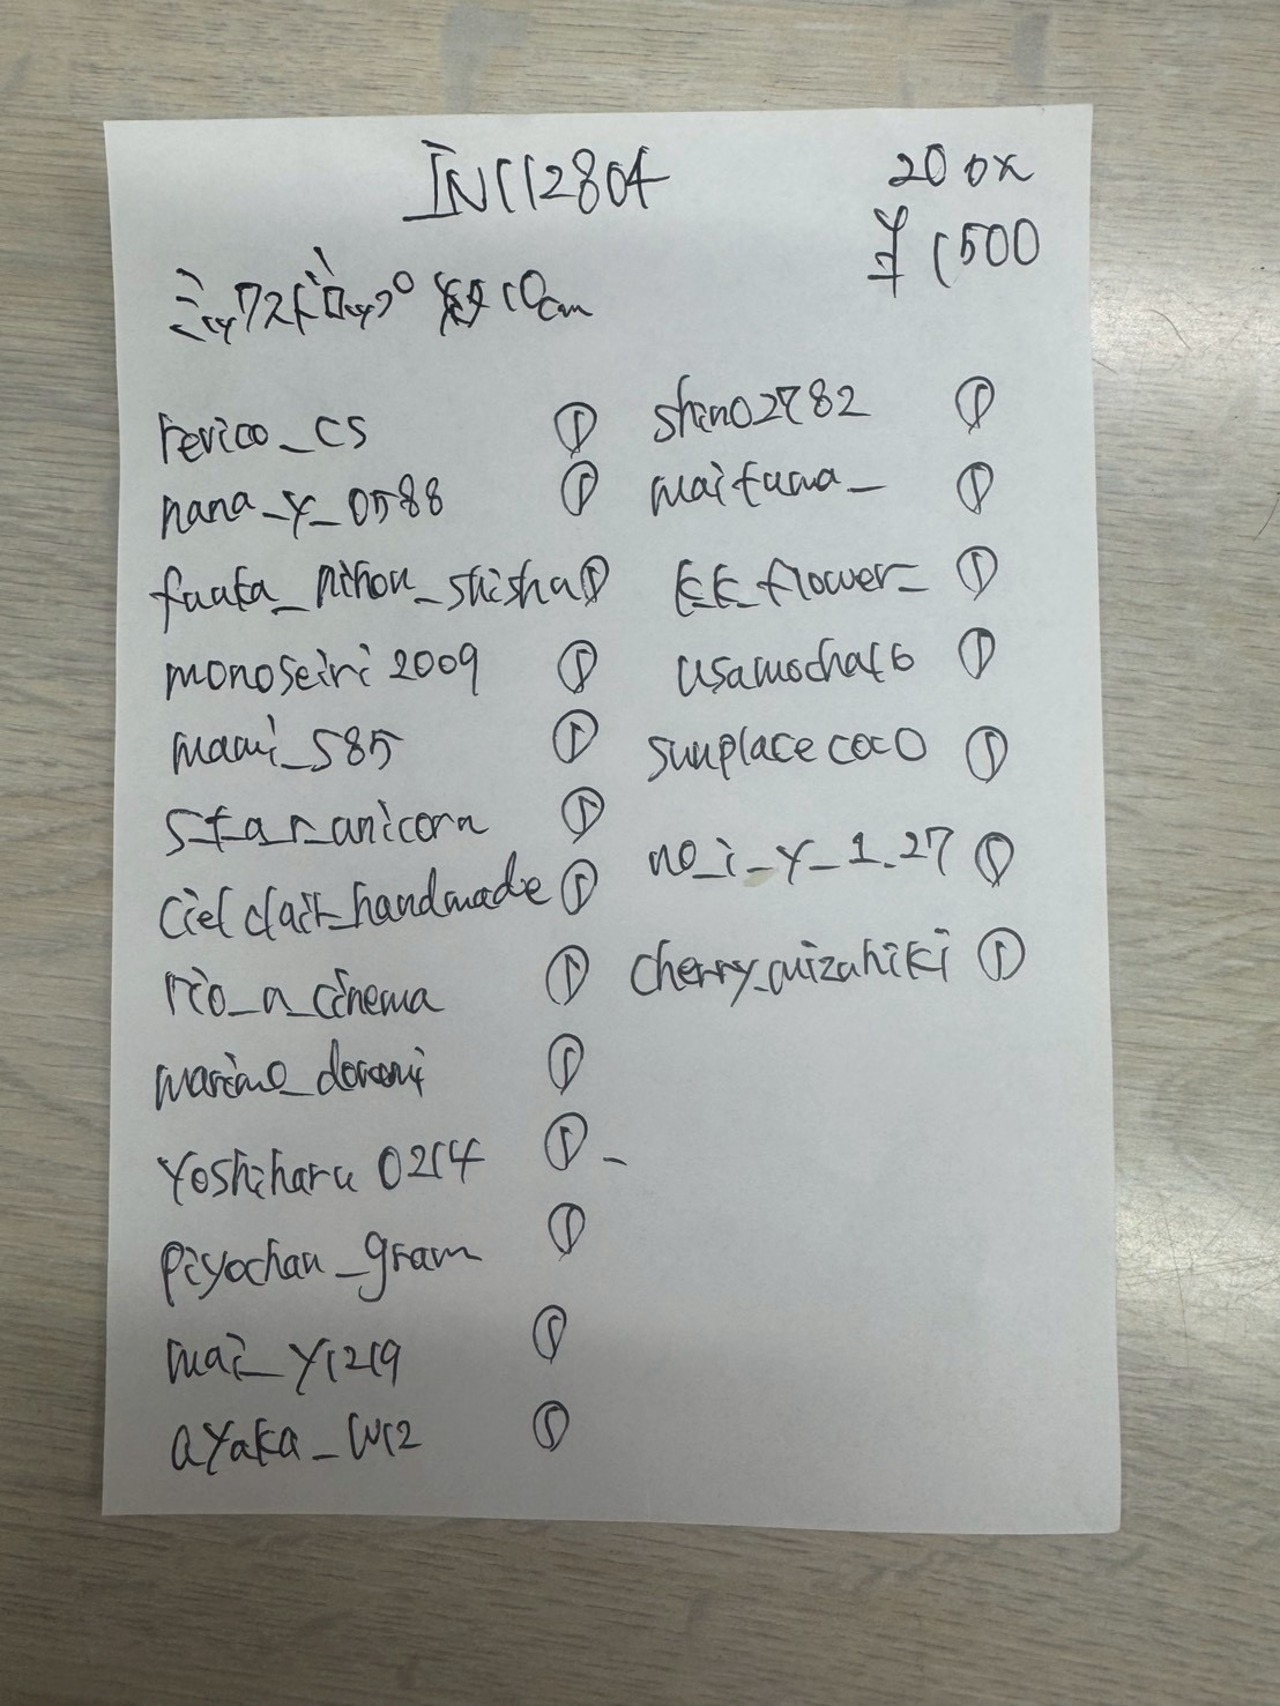 INC12804
200x
¥1500
ミックスドロップ 約10cm
revico_cs ①
nana_y_0588 ①
fuuka_nihon_shisha ①
monoseiri2009 ①
mami_585 ①
s_t_a_r_unicorn ①
cielclair_handmade ①
rio_a_cinema ①
marimo_ ①
yoshiharu0214 ①
piyochan_gram ①
mai_y1219 ①
ayaka_w12 ①
shino2782 ①
maituma_ ①
k.k_flower_ ①
usamocha16 ①
sunplacecoco ①
no_i_y_1.27 ①
cherry_mizuhiki ①